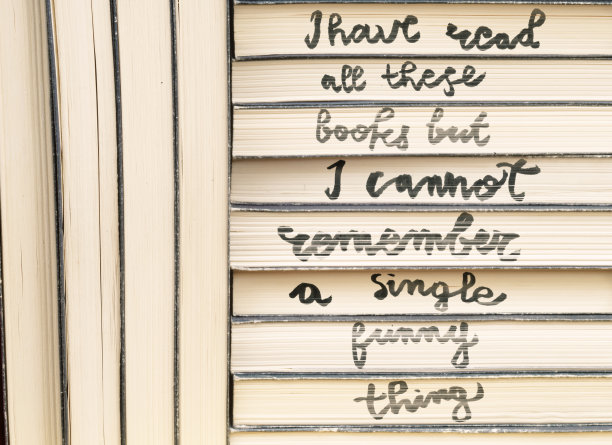 I have read
all these
books but
I cannot
remember
a single
funny
thing